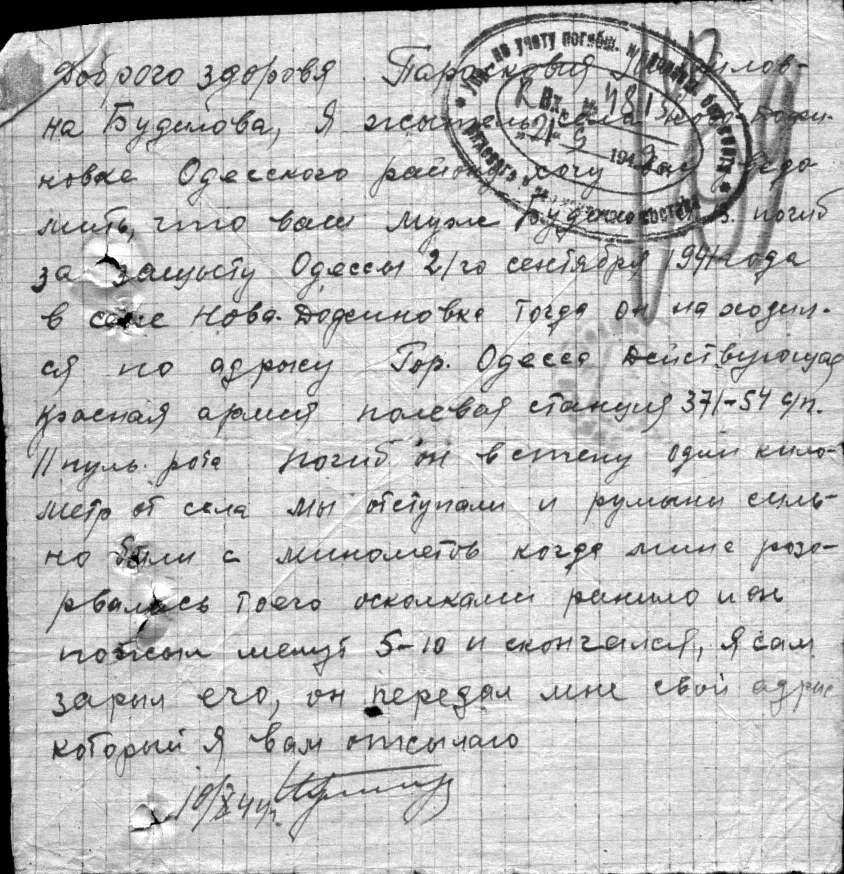 Доброго здоровя Парасковия
на Будилова, Я жытель села Ново-
новка Одесского району хочу вам уведо
мить, что ваш муж погиб
за защысту Одессы 21го сентября 1941 года
в селе Нова-Дофиновка тогда он находил-
ся по адрысу Гор. Одесса Действующая
красная армия полевая станция 371-54 с/п.
11 пуль. рота погиб он в степу один кило-
метр от села мы отступали и румыни силь-
но били с минометов когда мина розо-
рвалась то его осколками ранило и он
пожыл менут 5-10 и скончался, я сам
зарыл его, он передал мне свой адрыс
который я вам отсылаю
10/X 44г.
Упр. по учету погибш.
Вх. №
194